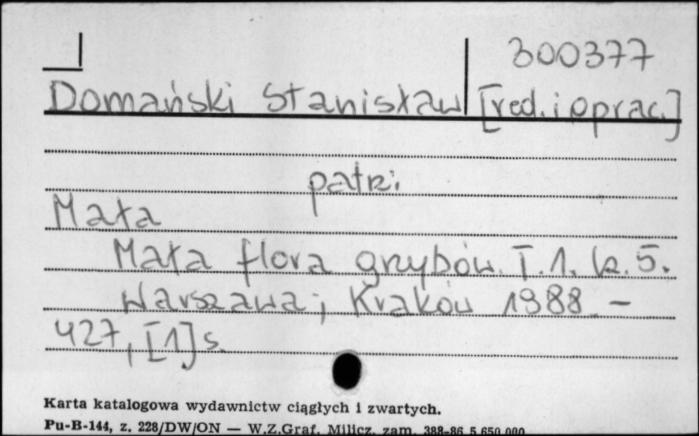 300377
Domański Stanisław [red. i oprac.]
patrz:
Mała
Mała flora grzybów. T. 1. Cz. 5.
Warszawa; Kraków 1988. –
427, [1] s.
Karta katalogowa wydawnictw ciągłych i zwartych.
Pu-B-144, z. 228/DW/ON — W.Z.Graf. Milicz, zam. 388-86 5.650.000